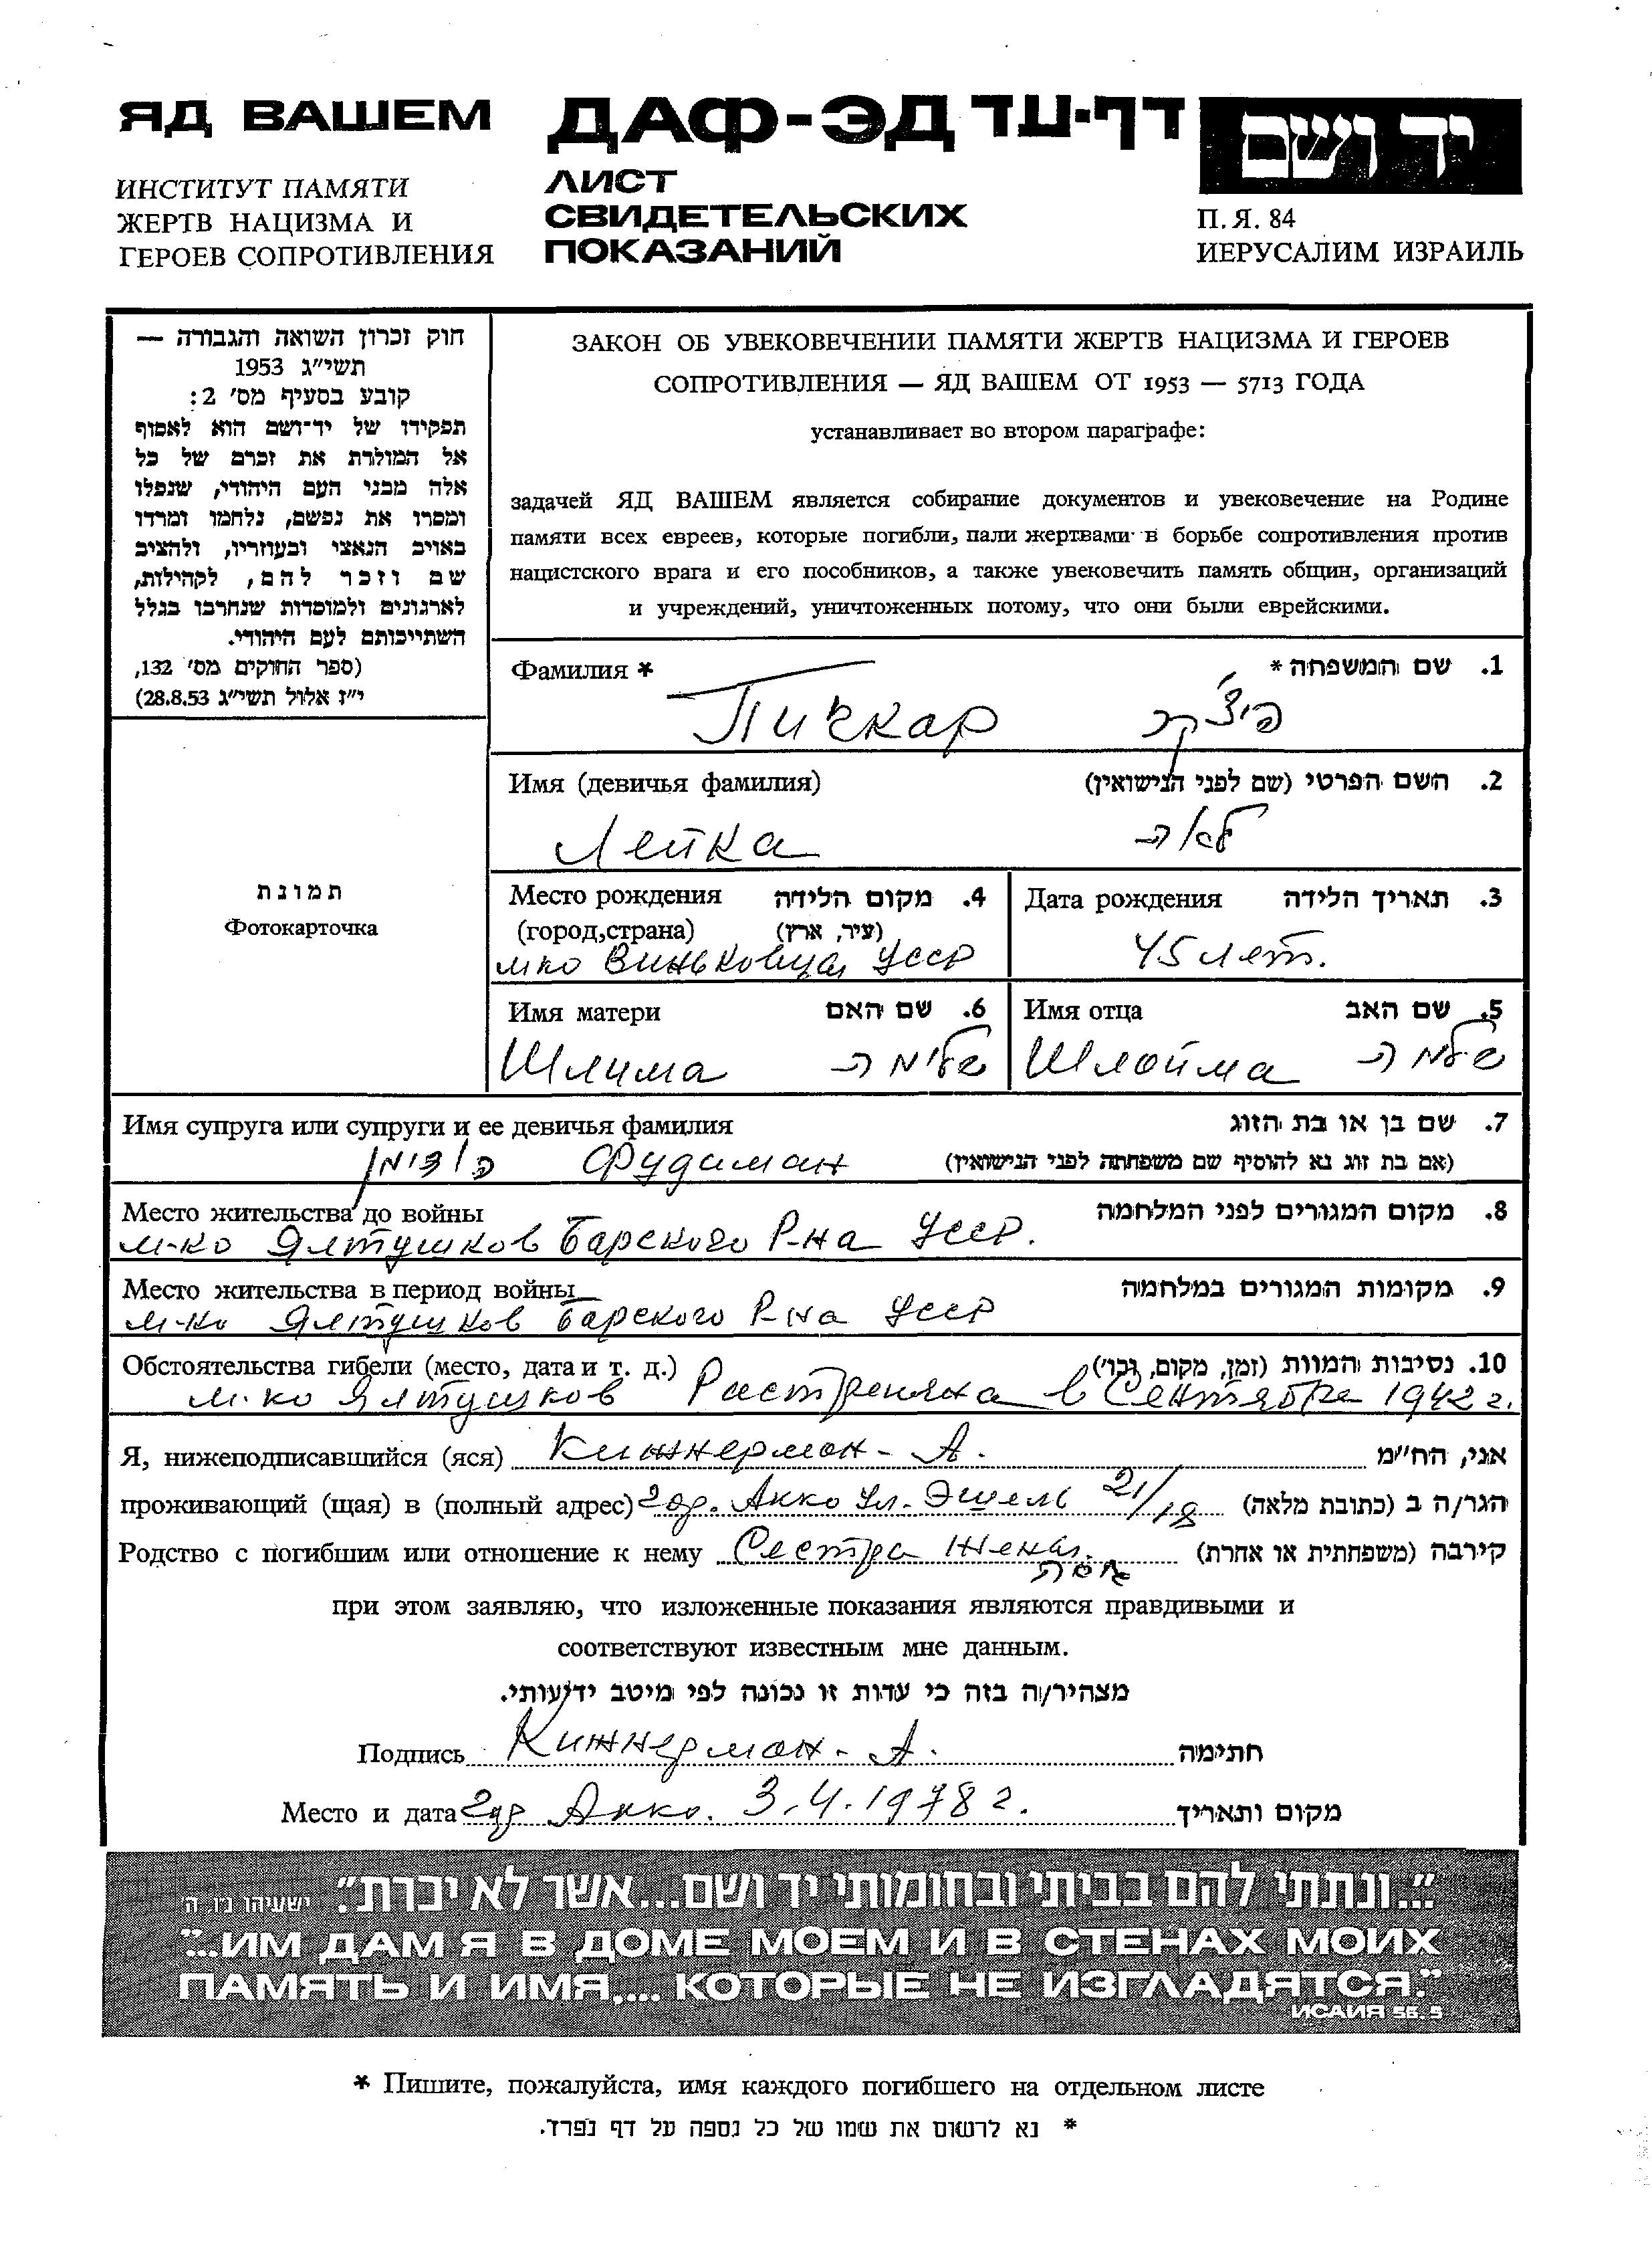 ЯД ВАШЕМ
ИНСТИТУТ ПАМЯТИ
ЖЕРТВ НАЦИЗМА И
ГЕРОЕВ СОПРОТИВЛЕНИЯ
ДАФ-ЭД דף-עד
ЛИСТ
СВИДЕТЕЛЬСКИХ
ПОКАЗАНИЙ
יד ושם
П. Я. 84
ИЕРУСАЛИМ ИЗРАИЛЬ
חוק זכרון השואה והגבורה —
תשי"ג 1953
קובע בסעיף מס' 2:
תפקידו של יד-ושם הוא לאסוף
אל המולדת את זכרם של כל
אלה מבני העם היהודי, שנפלו
ומסרו את נפשם, נלחמו ומרדו
באויב הנאצי ובעוזריו, ולהציב
שם וזכר להם, לקהילות,
לארגונים ולמוסדות שנחרבו בגלל
השתייכותם לעם היהודי.
(ספר החוקים מס' 132,
י"ז אלול תשי"ג 28.8.53)
תמונת
Фотокарточка
ЗАКОН ОБ УВЕКОВЕЧЕНИИ ПАМЯТИ ЖЕРТВ НАЦИЗМА И ГЕРОЕВ
СОПРОТИВЛЕНИЯ — ЯД ВАШЕМ ОТ 1953 — 5713 ГОДА
устанавливает во втором параграфе:
задачей ЯД ВАШЕМ является собирание документов и увековечение на Родине
памяти всех евреев, которые погибли, пали жертвами в борьбе сопротивления против
нацистского врага и его пособников, а также увековечить память общин, организаций
и учреждений, уничтоженных потому, что они были еврейскими.
Фамилия * 1. שם המשפחה *
Пичкар פיצ'קר
Имя (девичья фамилия) 2. השם הפרטי (שם לפני הנישואין)
Лейка לאה
Место рождения 4. מקום הלידה
(город,страна) (עיר, ארץ)
м-ко Виньковцы УССР
Дата рождения 3. תאריך הלידה
45 лет.
Имя матери 6. שם האם
Шлима שלימה
Имя отца 5. שם האב
Шлойма שלמה
Имя супруга или супруги и ее девичья фамилия 7. שם בן או בת הזוג
פודימן Фудиман (אם בת זוג נא להוסיף שם משפחתה לפני הנישואין)
Место жительства до войны 8. מקום המגורים לפני המלחמה
м-ко Ялтушков Барского Р-на УССР.
Место жительства в период войны 9. מקומות המגורים במלחמה
м-ко Ялтушков Барского Р-на УССР
Обстоятельства гибели (место, дата и т. д.) 10. נסיבות המוות (זמן, מקום, וכו')
м-ко Ялтушков Растреляна в Сентябре 1942 г.
Я, нижеподписавшийся (яся) Кижнерман - А. אני, הח"מ
проживающий (щая) в (полный адрес) гор. Акко Ул. Эшель 21/18 הגר/ה ב (כתובת מלאה)
Родство с погибшим или отношение к нему Сестра Жены. קירבה (משפחתית או אחרת)
גיסה
при этом заявляю, что изложенные показания являются правдивыми и
соответствуют известным мне данным.
מצהיר/ה בזה כי עדות זו נכונה לפי מיטב ידיעותי.
Подпись Кижнерман - А. חתימה
Место и дата гор Акко. 3.4.1978 г. מקום ותאריך
"...ונתתי להם בביתי ובחומותי יד ושם...אשר לא יכרת". ישעיהו נ"ו, ה'
"...ИМ ДАМ Я В ДОМЕ МОЕМ И В СТЕНАХ МОИХ
ПАМЯТЬ И ИМЯ,... КОТОРЫЕ НЕ ИЗГЛАДЯТСЯ."
ИСАИЯ 56, 5
* Пишите, пожалуйста, имя каждого погибшего на отдельном листе
* נא לרשום את שמו של כל נספה על דף נפרד.